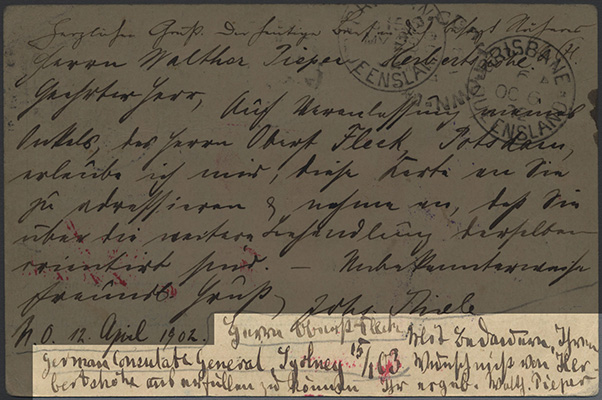 Herzlichen Gruß. Der heutige
Herrn Walther Pieper Herbertshöhe.
Geehrter Herr,
Auf Veranlassung meines
Onkels, des Herrn Oberst Fleck, Potsdam,
erlaube ich mir, diese Karte an Sie
zu adressieren & nehme an, daß Sie
über die weitere Behandlung derselben
orientirt sind. — Unbekannterweise
freundl. Gruß, John Thiele
N.O. 12. April 1902.
Herrn Oberst Fleck
Mit Bedauern, Ihren
German Consulate General, Sydney 15/1 03 Wunsch nicht von Her
bertshöhe aus erfüllen zu können Ihr ergeb. Walth. Pieper
BRISBANE
OC 6
QUEENSLAND